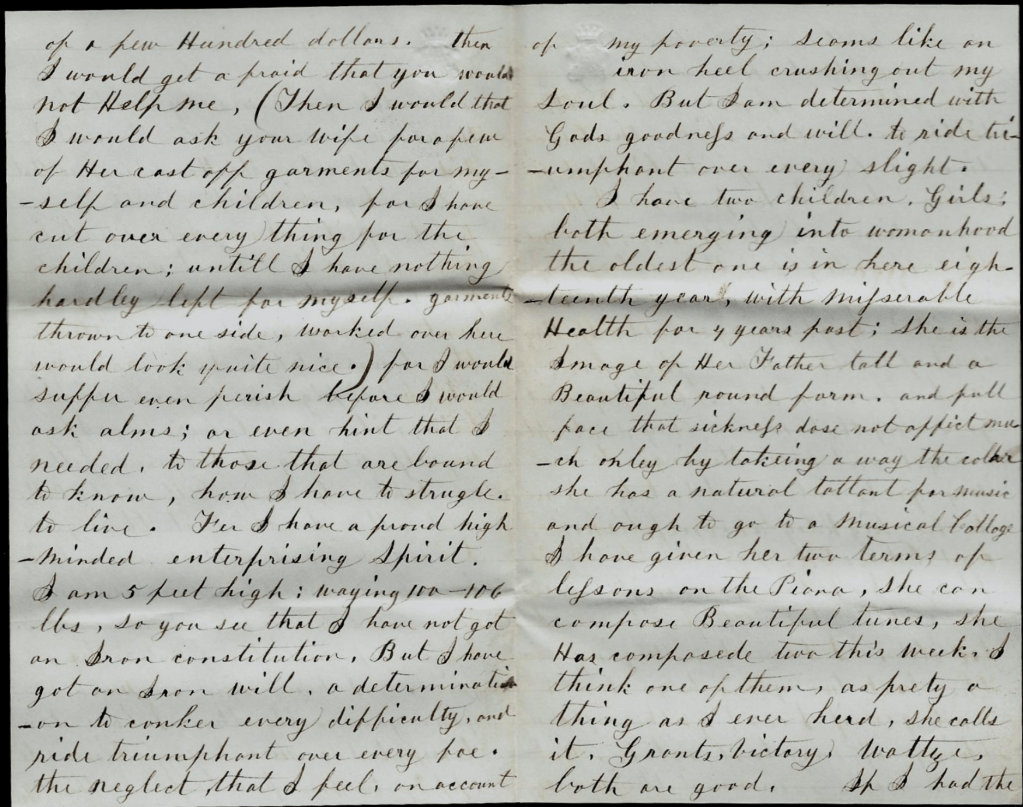 of a few Hundred dollars. then
I would get a fraid that you would
not Help me, (Then I would that
I would ask your wife for a few
of Her cast off garments for my-
-self and children, for I have
cut over every thing for the
children; untill I have nothing
hardley left for myself. garments
thrown to one side, worked over here
would look quite nice.) for I would
suffer even perish before I would
ask alms; or even hint that I
needed, to those that are bound
to know, how I have to strugle.
to live. For I have a proud high
-minded enterprising Spirit.
I am 5 feet high; waying 100-106
lbs, so you see that I have not got
an Iron constitution, But I have
got an Iron will, a determinati
-on to conker every difficulty, and
ride triumphant over every foe.
the neglect, that I feel, on account
of my poverty; seams like an
iron heel crushing out my
Soul. But I am determined with
Gods goodness and will. to ride tri-
-umphant over every slight.
I have two children, Girls;
both emerging into womanhood
the oldest one is in here eigh-
-teenth year, with misserable
Health for 4 years past; she is the
Image of Her Father tall and a
Beautiful round form. and full
face that sickness dose not affict mu-
-ch onley by takeing a way the coller
she has a natural tallant for music
and ough to go to a Musical Colloge
I have given her two terms of
lessons on the Piona, she can
compose Beautiful tunes, she
Has composede two this week. I
think one of them, as prety a
thing as I ever herd, she calls
it, Grants, Victory, Waltze,
both are good. If I had the